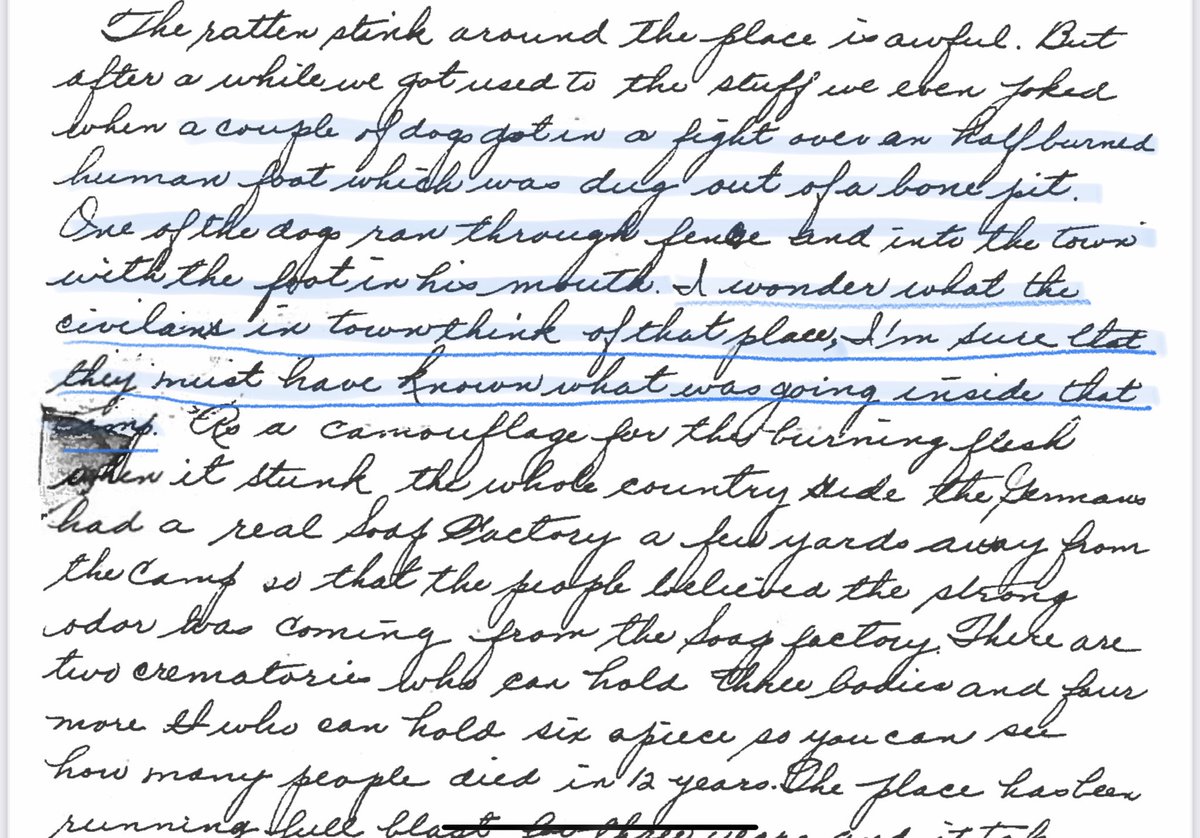 The ratten stink around the place is awful. But
after a while we got used to the stuff we even joked
when a couple of dogs got in a fight over an half burned
human foot which was dug out of a bone pit.
One of the dogs ran through fence and into the town
with the foot in his mouth. I wonder what the
civilains in town think of that place, I'm sure that
they must have known what was going inside that
camp. As a camouflage for the burning flesh
when it stunk the whole country side the Germans
had a real Soap Factory a few yards away from
the Camp so that the people believed the strong
odor was coming from the Soap factory. There are
two crematories who can hold three bodies and four
more who can hold six apiece so you can see
how many people died in 12 years. The place has been
running full blast for three years and it